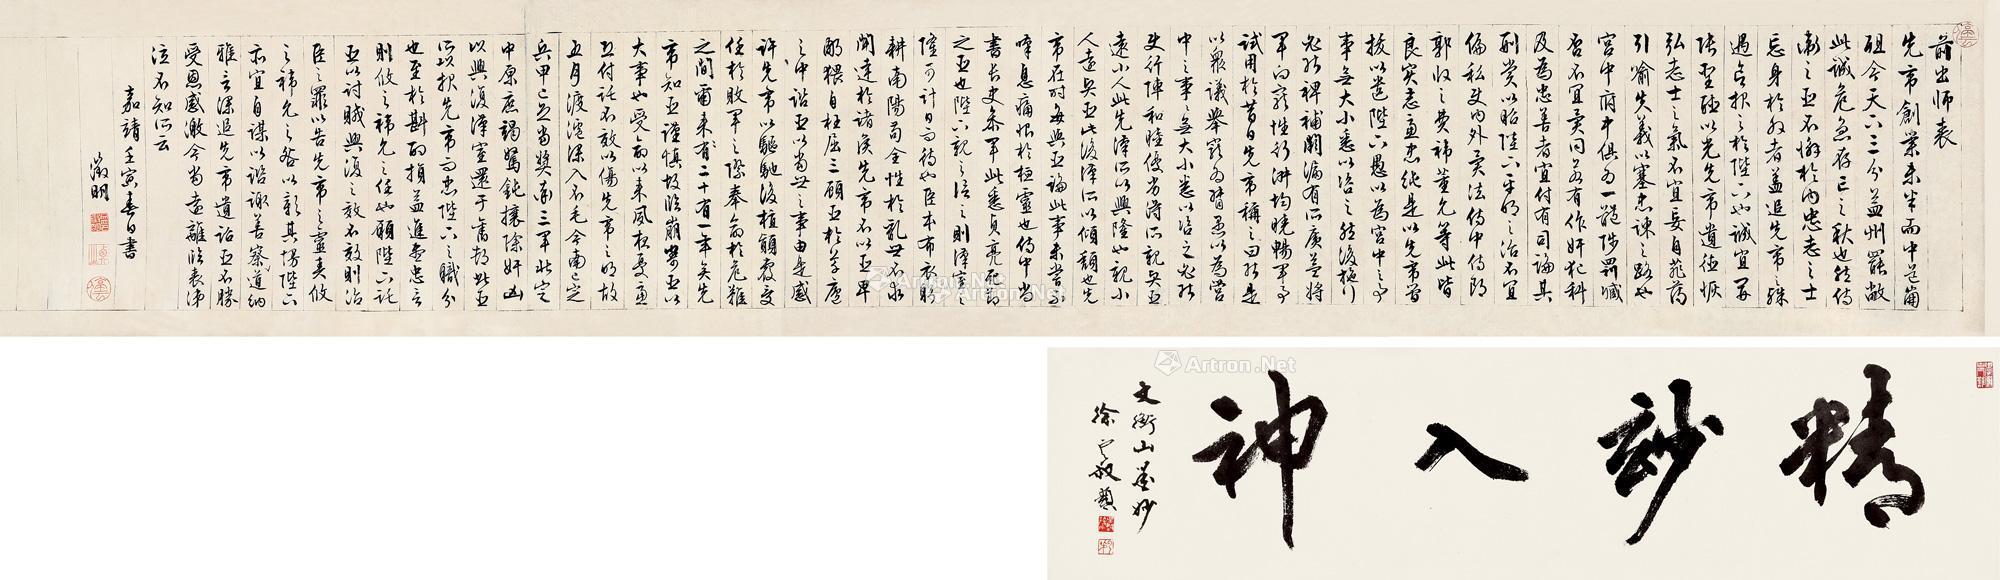 前出师表
先帝創業未半而中道崩
殂今天下三分益州罷敝
此誠危急存亡之秋也然侍
衛之臣不懈於內忠志之士
忘身於外者蓋追先帝之殊
遇欲報之於陛下也誠宜開
張聖聽以光先帝遺德恢
弘志士之氣不宜妄自菲薄
引喻失義以塞忠諫之路也
宮中府中俱為一體陟罰臧
否不宜異同若有作奸犯科
及為忠善者宜付有司論其
刑賞以昭陛下平明之治不宜
偏私使內外異法侍中侍郎
郭攸之費禕董允等此皆
良實志慮忠純是以先帝簡
拔以遺陛下愚以為宮中之
事無大小悉以咨之然後施行
必能裨補闕漏有所廣益將
軍向寵性行淑均曉暢軍事
試用於昔日先帝稱之曰能是
以眾議舉寵為督愚以為營
中之事事無大小悉以咨之必能
使行陣和睦優劣得所親賢臣
遠小人此先漢所以興隆也親小
人遠賢臣此後漢所以傾頹也先
帝在時每與臣論此事未嘗不
嘆息痛恨於桓靈也侍中尚
書長史參軍此悉貞亮死節
之臣也陛下親之信之則漢室之
隆可計日而待也臣本布衣躬
耕南陽苟全性於亂世不求
聞達於諸侯先帝不以臣卑
鄙猥自枉屈三顧臣於草廬
之中諮臣以當世之事由是感
許先帝以驅馳後值傾覆受
任於敗軍之際奉命於危難
之間爾來有二十有一年矣先
帝知臣謹慎故臨崩寄臣以
大事也受命以來夙夜憂慮
恐付託不效以傷先帝之明故
五月渡瀘深入不毛今南已定
兵甲已足當獎率三軍北定
中原庶竭駑鈍攘除奸凶
以興復漢室還于舊都此臣
所以報先帝而忠陛下之職分
也至於斟酌損益進盡忠言
則攸之禕允之任也願陛下託
臣以討賊興復之效不效則治
臣之罪以告先帝之靈責攸
之禕允之咎以彰其慢陛下
亦宜自謀以諮諏善察道納
雅言深追先帝遺詔臣不勝
受恩感激今當遠離臨表涕
泣不知所云
嘉靖壬寅春日書
徵明
精妙入神
文衡山墨妙
徐之敏題
Artron.Net
Artron.Net